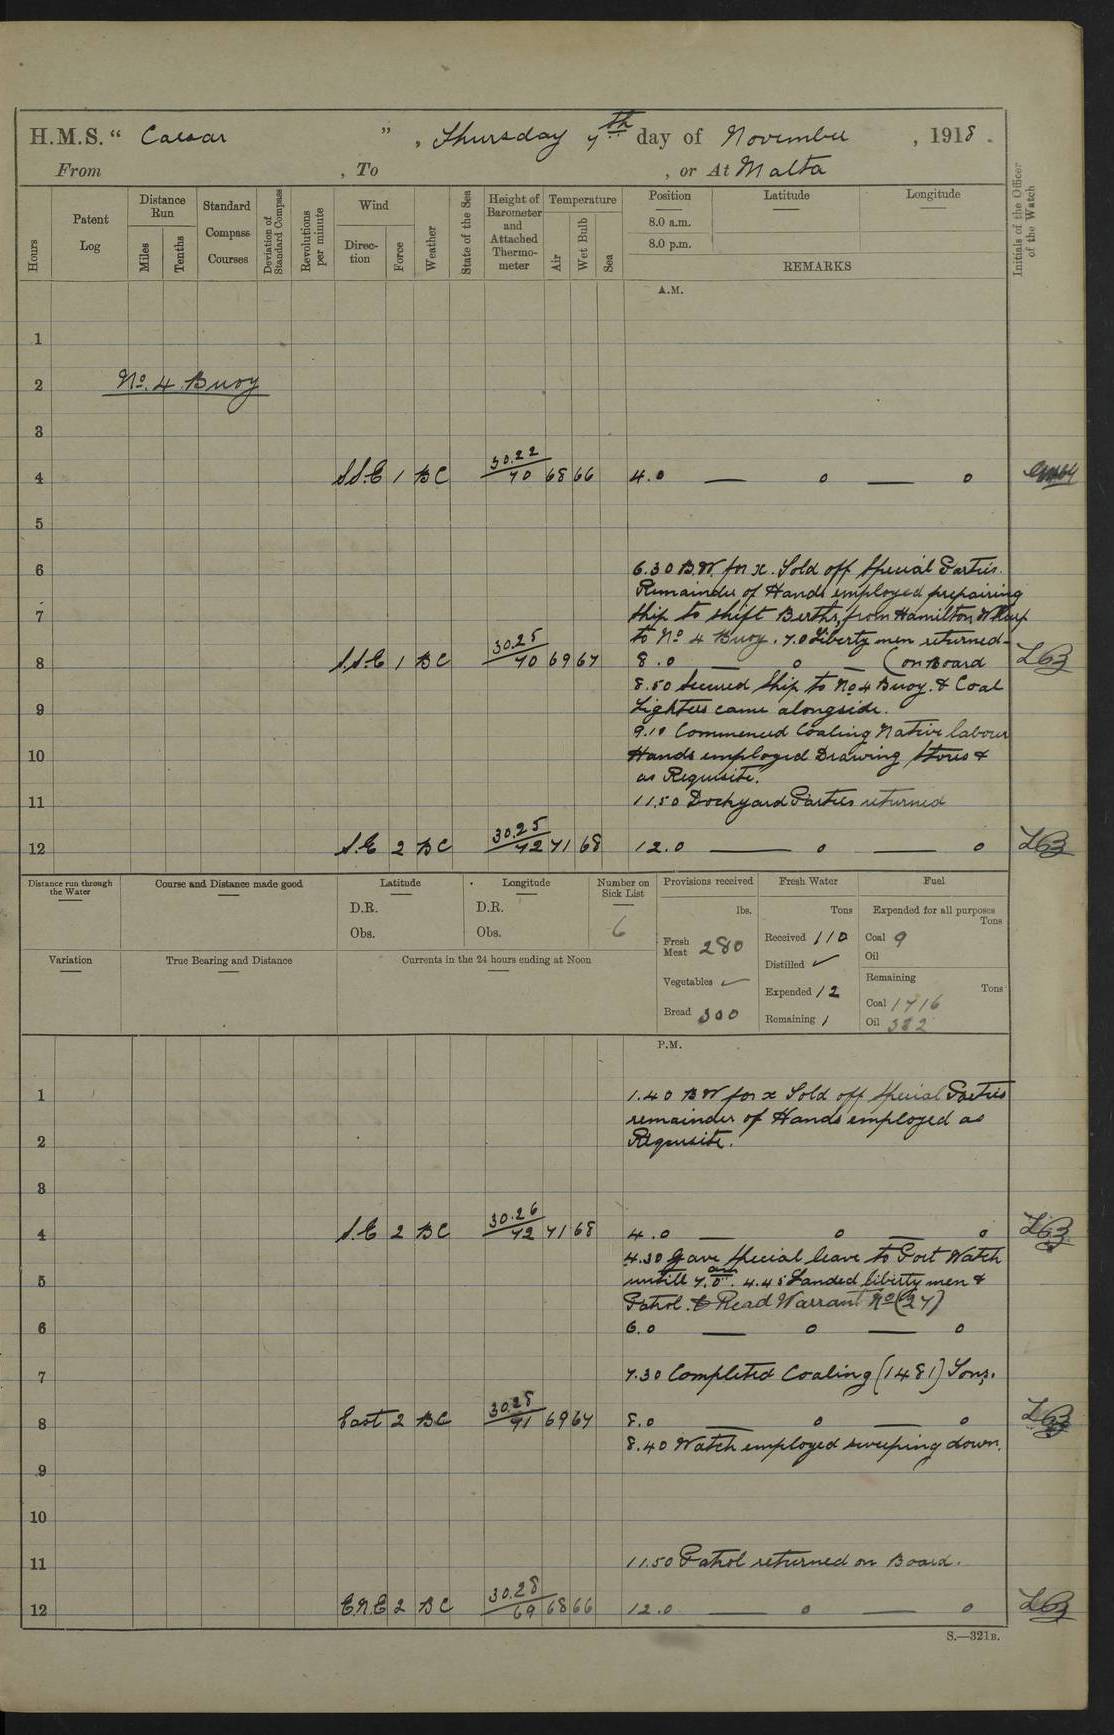 H.M.S. “ Caesar ” , Thursday 7th day of November , 1918 .
From , To , or At Malta
Hours
Patent Log
Distance Run
Miles
Tenths
Standard Compass Courses
Deviation of Standard Compass
Revolutions per minute
Wind
Direc-tion
Force
Weather
State of the Sea
Height of Barometer and Attached Thermo-meter
Temperature
Air
Wet Bulb
Sea
Position
8.0 a.m.
8.0 p.m.
Latitude
Longitude
REMARKS
Initials of the Officer of the Watch
A.M.
1
2 No. 4 Buoy
3
4 S.S.E 1 BC 30.22 70 68 66 4.0 — o — o
5
6 6.30 B.W. for x. Told off Special Parties.
Remainder of Hands employed prepairing
7 Ship to shift Berths, from Hamilton Wharf
to No 4 Buoy. 7.0 Liberty men returned
8 S.S.E 1 BC 30.25 70 69 67 8.0 — o — (on Board LGB
8.50 Secured Ship to No 4 Buoy. & Coal
9 Lighters came alongside.
9.10 Commenced Coaling Native labour
10 Hands employed Drawing Stores &
as Requisite.
11 11.50 Dockyard Parties returned
12 S.E 2 BC 30.25 72 71 68 12.0 — o — o LGB
Distance run through the Water
Course and Distance made good
Latitude
D.R.
Obs.
Longitude
D.R.
Obs.
Number on Sick List
6
Provisions received
lbs.
Fresh Meat 280
Vegetables ✓
Bread 300
Fresh Water
Tons
Received 110
Distilled ✓
Expended 12
Remaining
Fuel
Expended for all purposes
Tons
Coal 9
Oil
Remaining
Tons
Coal 1716
Oil 382
Variation
True Bearing and Distance
Currents in the 24 hours ending at Noon
P.M.
1 1.40 BW for x Told off Special Parties
remainder of Hands employed as
2 Requisite.
3
4 S.E 2 BC 30.26 72 71 68 4.0 — o — o LGB
4.30 Gave Special leave to Port Watch
5 untill 7.0 am. 4.45 Landed liberty men &
Patrol. & Read Warrant No (27)
6 6.0 — o — o
7 7.30 Completed Coaling (1481) Tons.
8 East 2 BC 30.28 71 69 67 8.0 — o — o LGB
8.40 Watch employed sweeping down.
9
10
11 11.50 Patrol returned on Board.
12 E.N.E 2 BC 30.28 69 68 66 12.0 — o — o LGB
S.—321B.